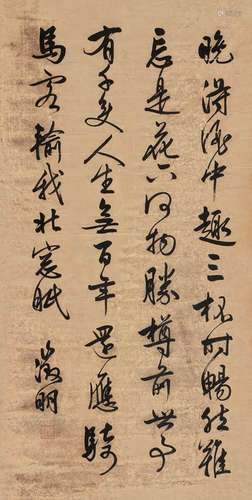 晚得酒中趣三杯時暢然難
忘是花下何物勝樽前世事
有千變人生無百年還應騎
馬客輸我北窗眠 徵明